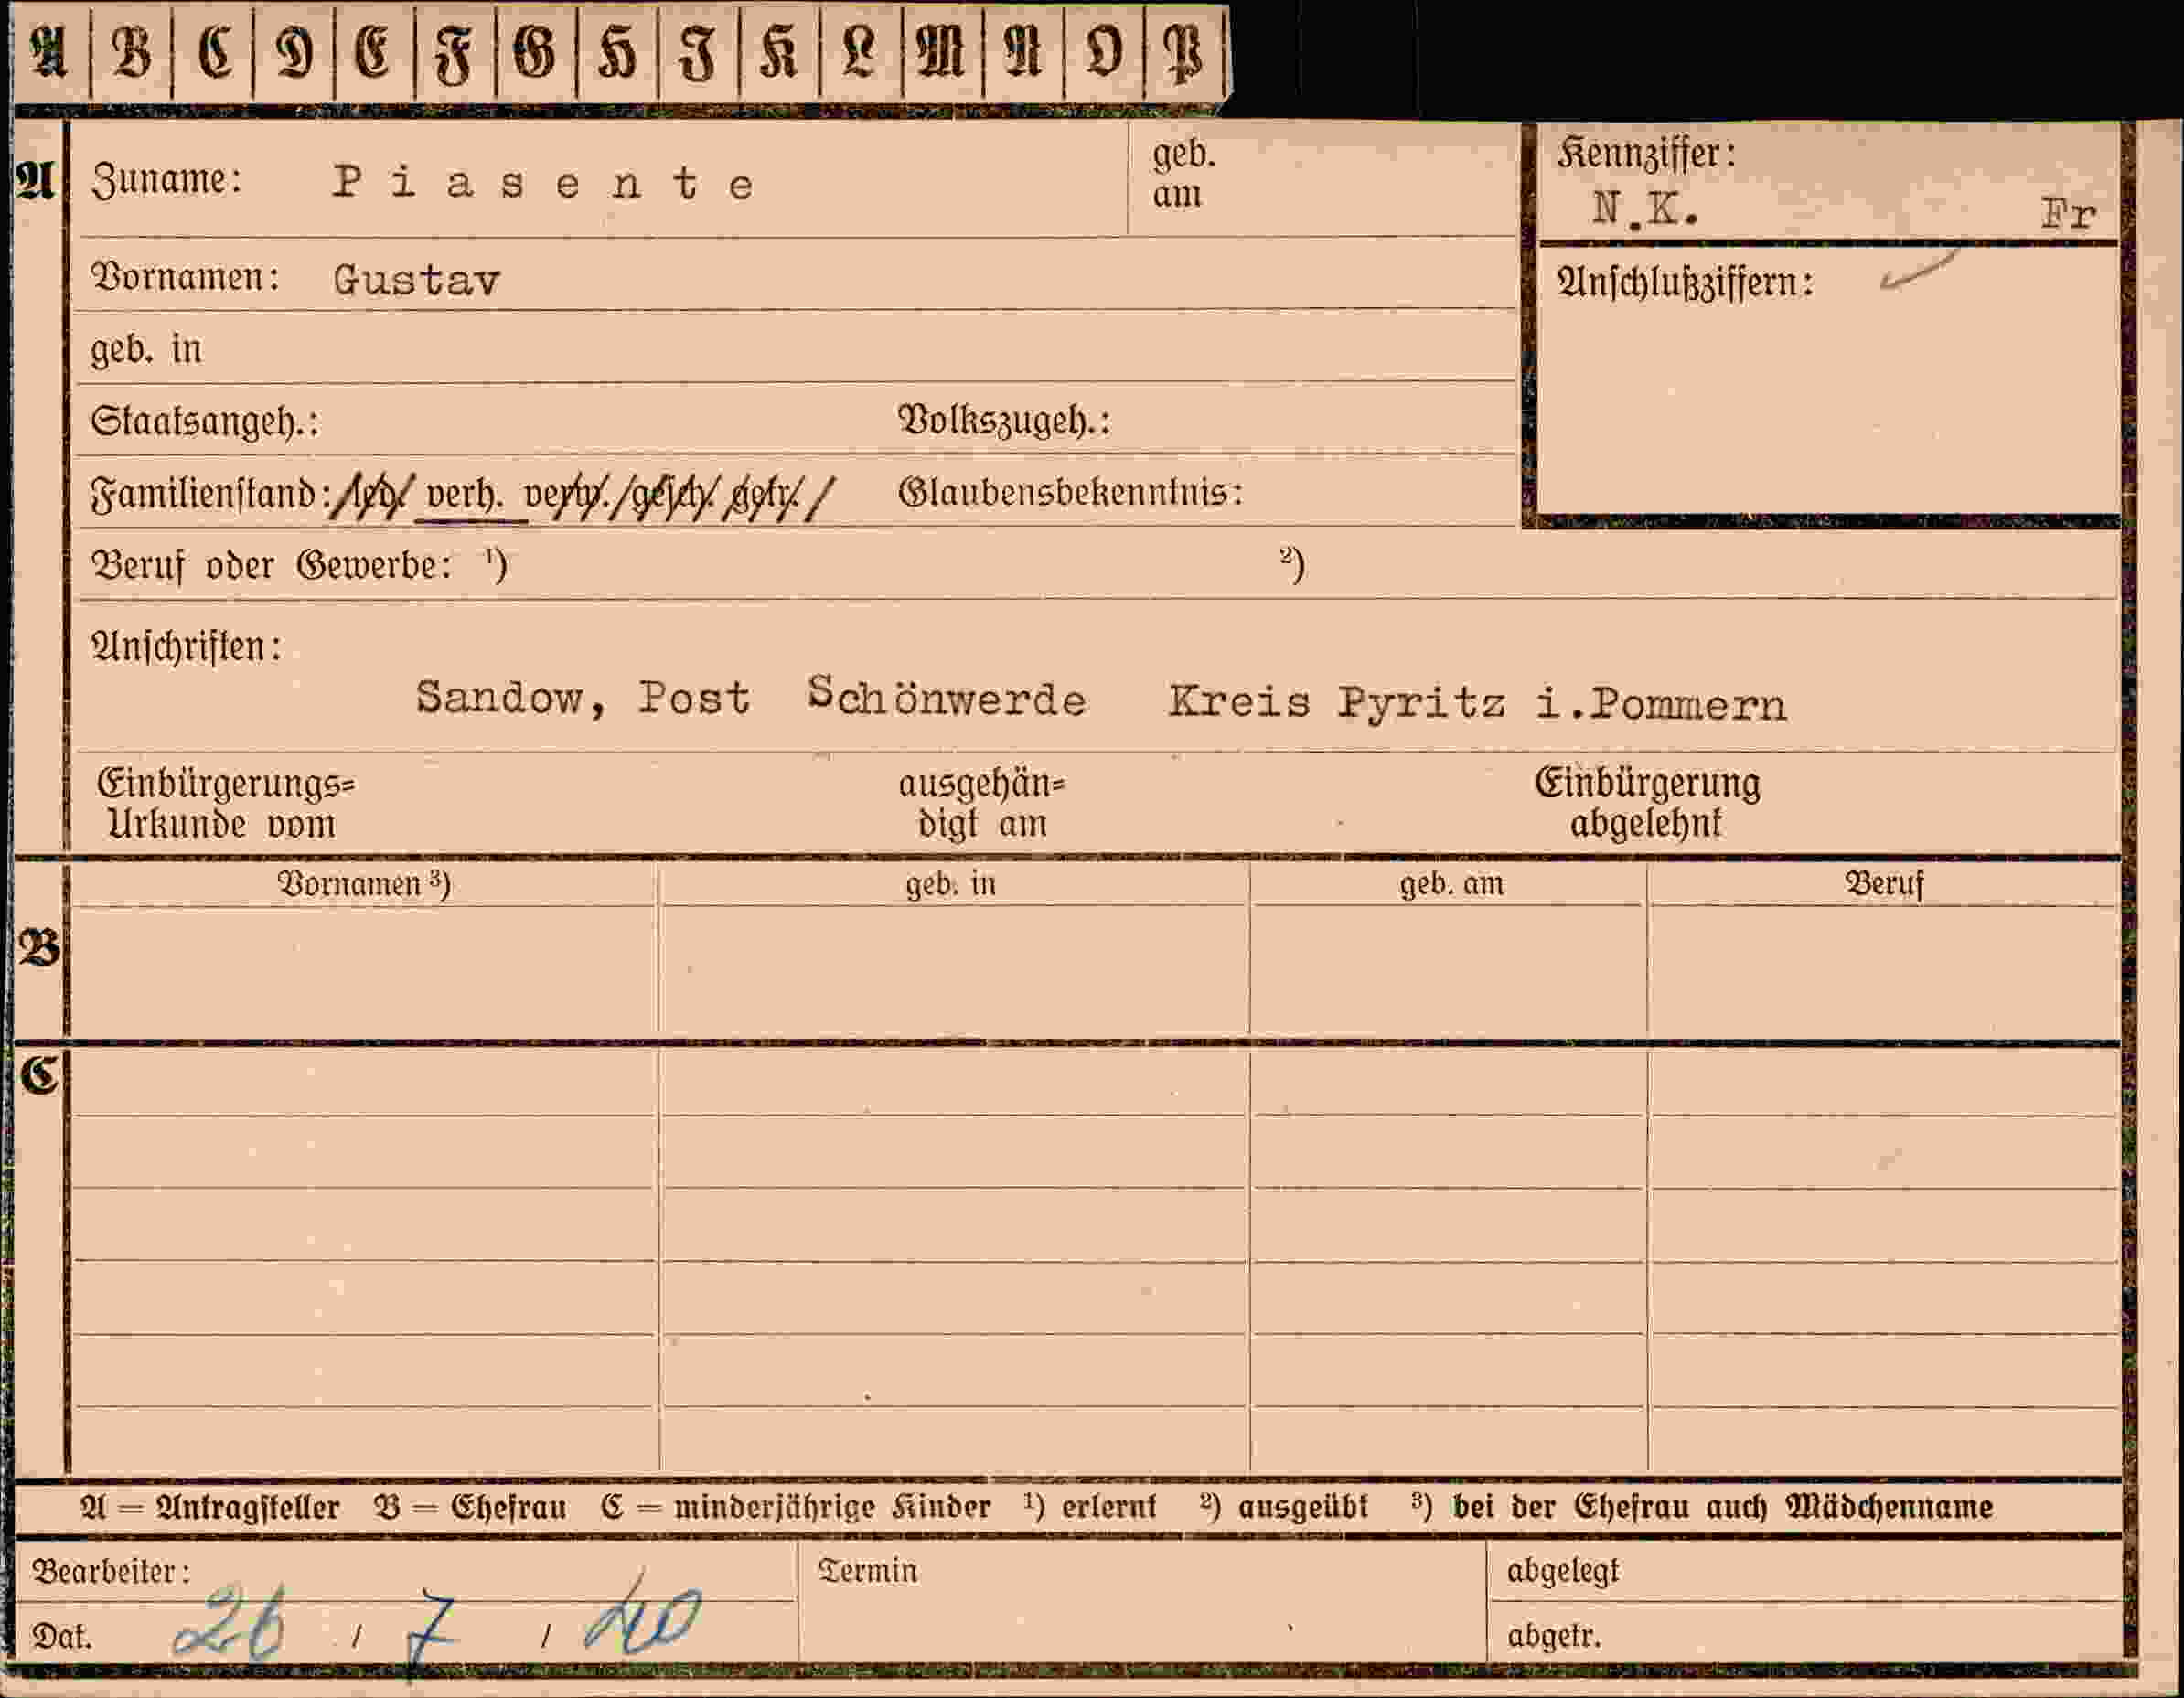 A B C D E F G H I K L M N O P
A Zuname: Piasente geb. am
Kennziffer:
N.K. Fr
Vornamen: Gustav
Anschlußziffern:
geb. in
Staatsangeh.: Volkszugeh.:
Familienstand: led. verh. verw. gesch. getr. Glaubensbekenntnis:
Beruf oder Gewerbe: ¹) ²)
Anschriften:
Sandow, Post Schönwerde Kreis Pyritz i.Pommern
Einbürgerungs=
Urkunde vom
ausgehän=
digt am
Einbürgerung
abgelehnt
Vornamen ³) geb. in geb. am Beruf
B
C
A = Antragsteller B = Ehefrau C = minderjährige Kinder ¹) erlernt ²) ausgeübt ³) bei der Ehefrau auch Mädchenname
Bearbeiter: Termin abgelegt
Dat. 26 / 7 / 40 abgetr.